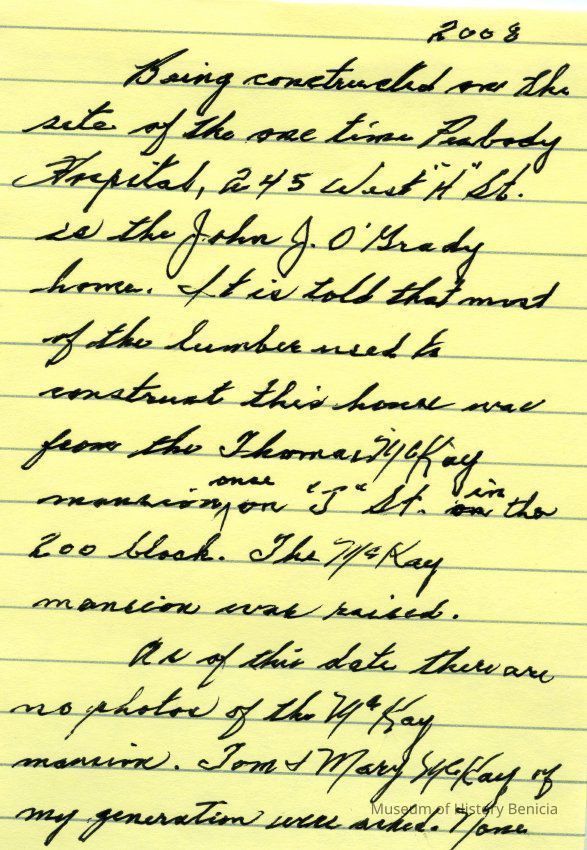 2008
Being constructed on the
site of the one time Peabody
Hospital, 245 West "H" St.
is the John J. O'Grady
home. It is told that most
of the lumber used to
construct this house was
from the Thomas McKay
once in
mansion, on "J" St. on the
200 block. The McKay
mansion was raised.
As of this date there are
no photos of the McKay
mansion. Tom & Mary McKay of
my generation were asked. None
Museum of History Benicia